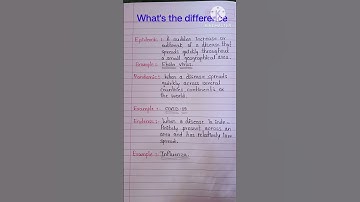 What's the difference
Epidemic : A sudden increase in
outbreak of a disease that
spreads quickly throughout
a small geographical area.
Example : Ebola virus.
Pandemic : When a disease spreads
quickly across several
countries continents or
the world.
Example : COVID-19
Endemic : When a disease is inde-
finitely present across an
area and has relatively low
spread.
Example : Influenza.